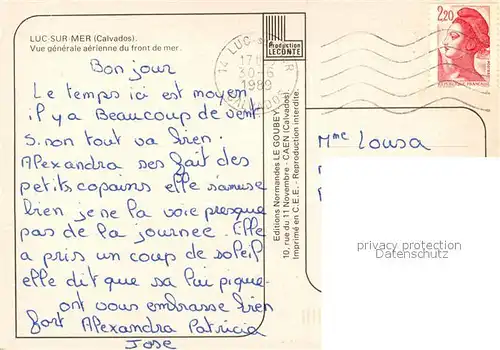 LUC-SUR-MER (Calvados).
Vue générale aérienne du front de mer.
Production
LECONTE
14 LUC S MER
17H
30-6
1989
CALVADOS
2,20
Bonjour
Le temps ici est moyen
il y a Beaucoup de vent
sinon tout va bien.
Alexandra ses fait des
petits copains elle s'amuse
bien je ne la voie presque
pas de la journee. Elle
a pris un coup de soleil
elle dit que sa lui pique
ont vous embrasse bien
fort Alexandra Patricia
Jose
Editions Normandes LE GOUBEY
10, rue du 11 Novembre - CAEN (Calvados).
Imprimé en C.E.E. - Reproduction interdite.
Mme Lousa
privacy protection